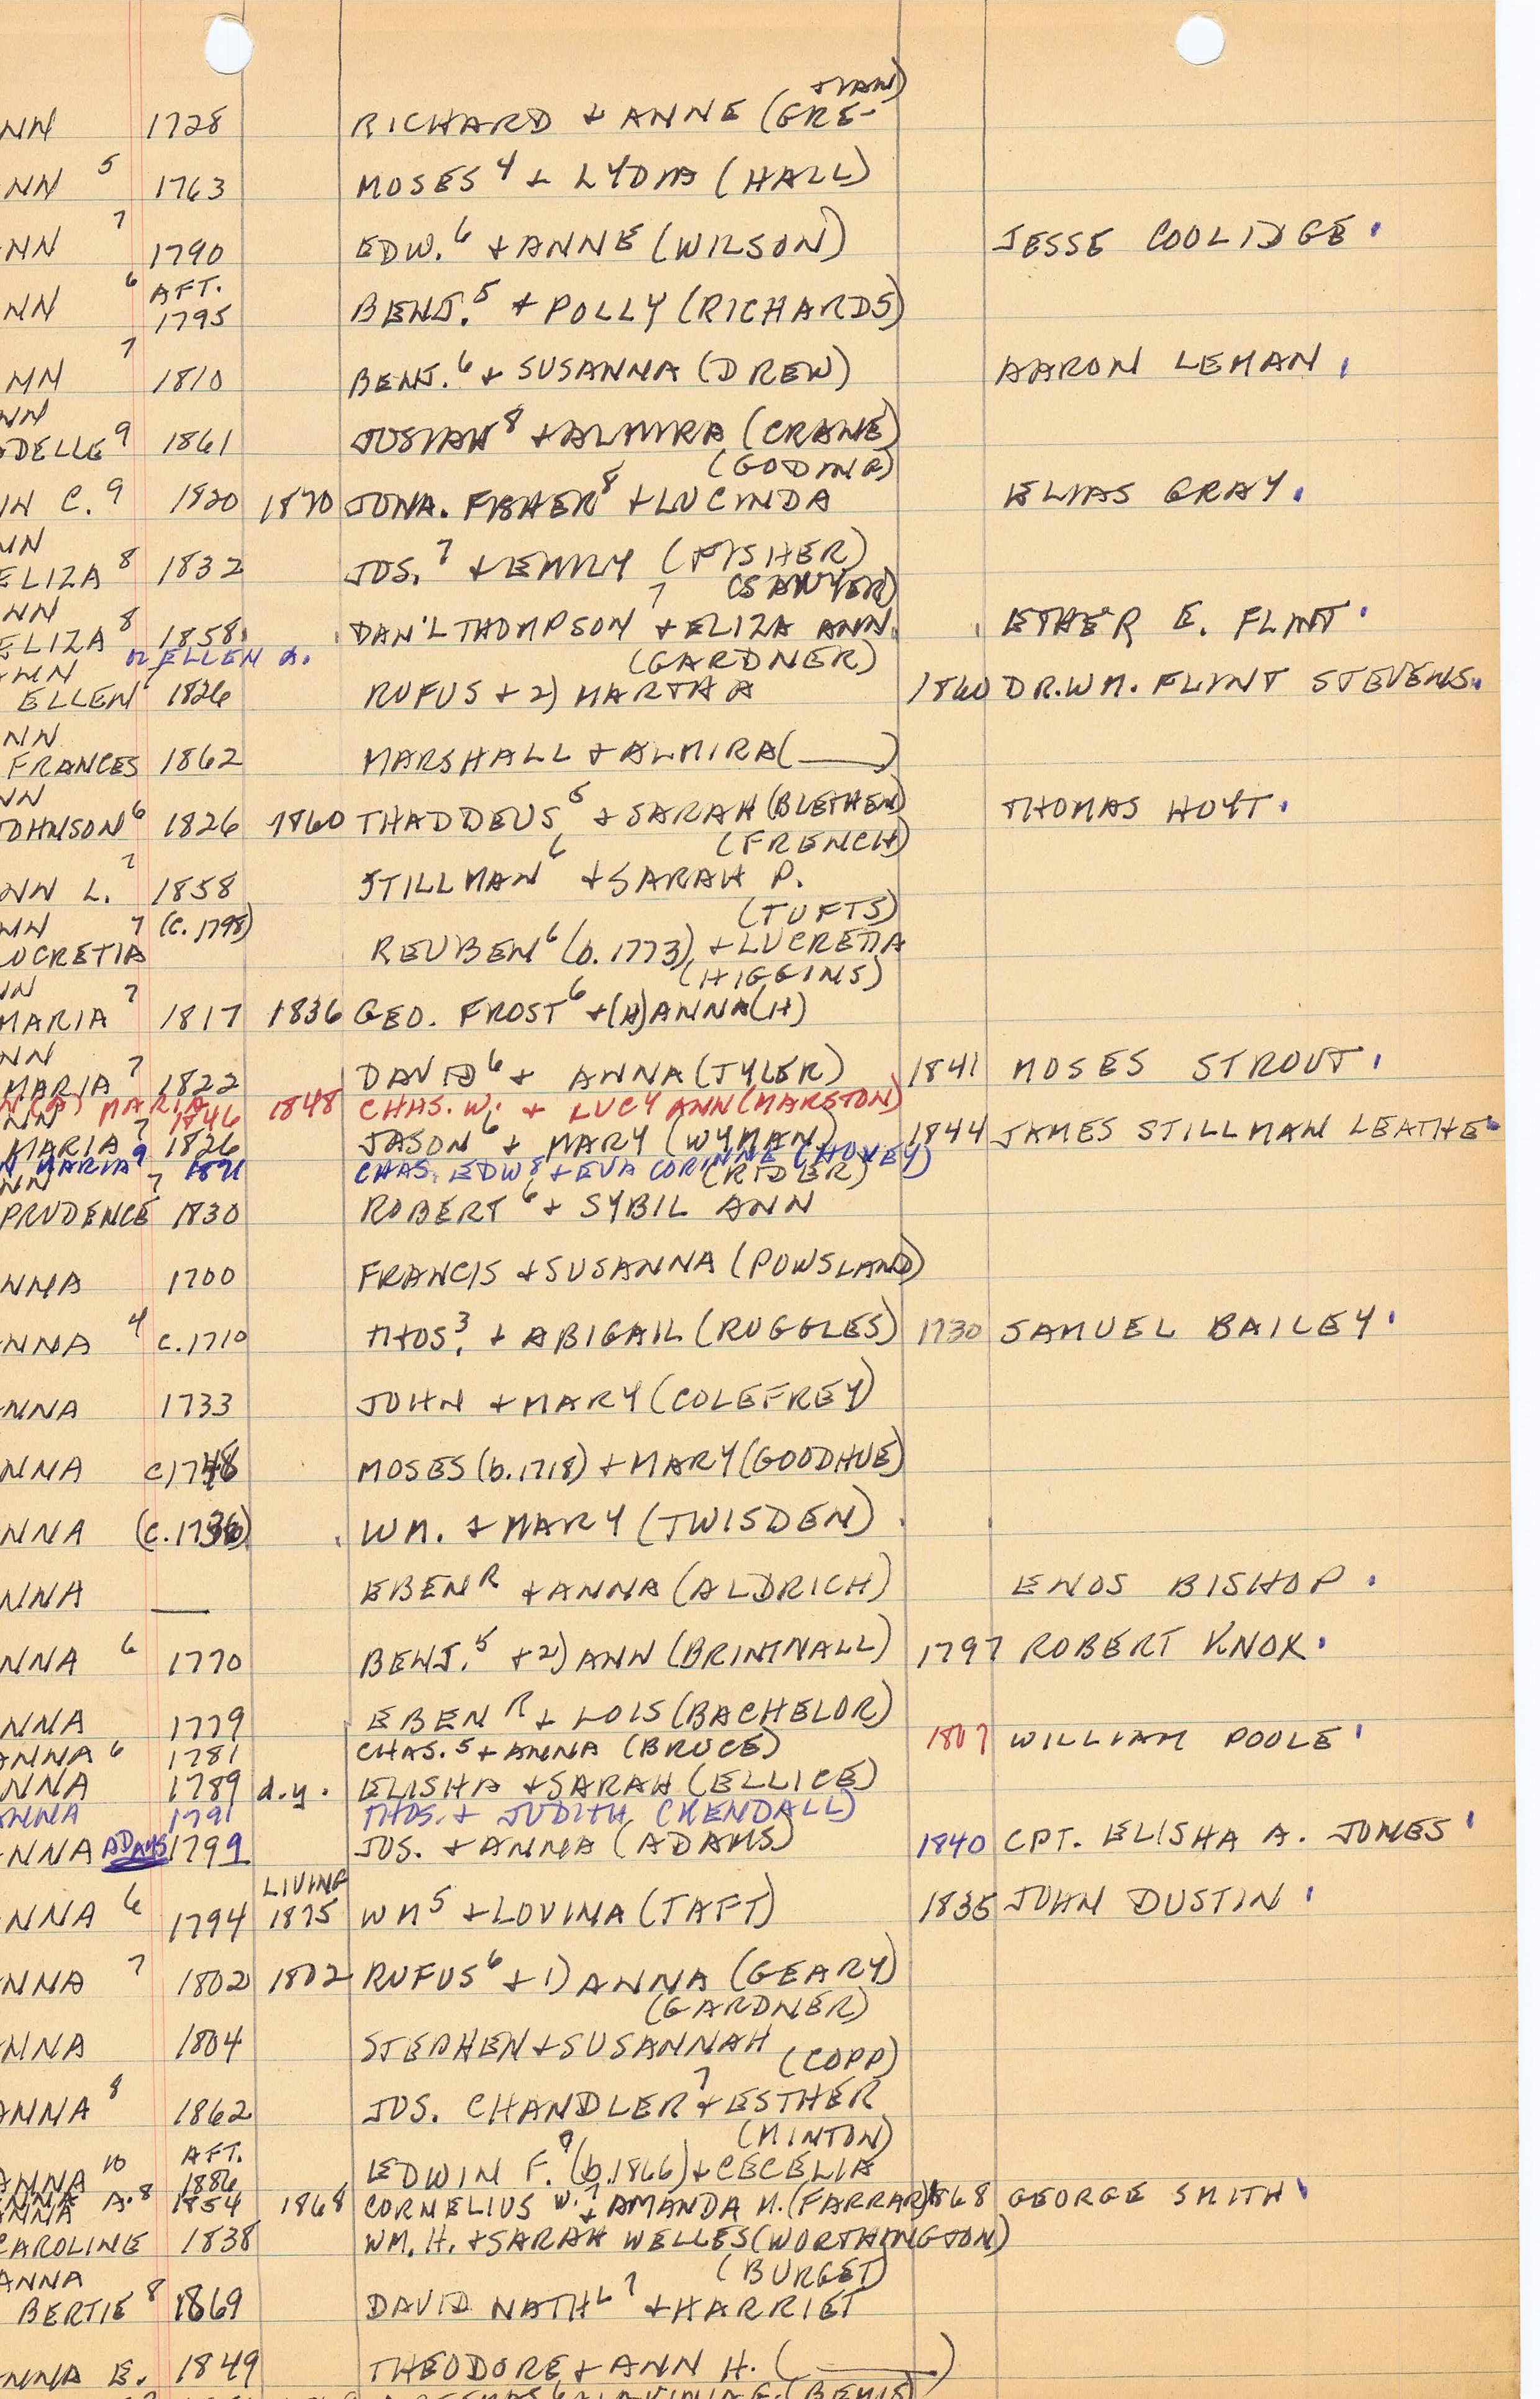 TMAN)
NN 1728 RICHARD + ANNE (GRE-
NN 5 1763 MOSES 4 + LYDIA (HALL)
NN 7 1790 EDW. 6 + ANNE (WILSON) JESSE COOLIDGE.
6 AFT.
NN 1795 BENJ. 5 + POLLY (RICHARDS)
NN 7 1810 BENJ. 6 + SUSANNA (DREW) AARON LEMAN.
NN
DELLE 9 1861 JOSIAH 8 + ALMIRA (CRANE)
(GODING)
NN C. 9 1820 1870 JONA. FISHER 8 + LUCINDA ELIAS GRAY.
NN
ELIZA 8 1832 JOS. 7 + EMILY (FISHER)
(SAWYER)
NN
ELIZA 8 1858. DAN'L THOMPSON 7 + ELIZA ANN. ETHER E. FLINT.
NN or ELLEN A. (GARDNER)
ELLEN 7 1826 RUFUS + 2) MARTHA 1860 DR. WM. FLINT STEVENS.
NN
FRANCES 1862 MARSHALL + ALMIRA (___)
NN
JOHNSON 6 1826 1860 THADDEUS 5 + SARAH (BLETHEN) THOMAS HOYT.
(FRENCH)
NN L. 7 1858 STILLMAN 6 + SARAH P.
NN 7 (C. 1798) (TUFTS)
LUCRETIA REUBEN 6 (b. 1773) + LUCRETIA
NN (HIGGINS)
MARIA 7 1817 1836 GEO. FROST 6 + (H)ANNA(H)
NN
MARIA 7 1822 DAVID 6 + ANNA (TYLER) 1841 MOSES STROUT.
MARIA 1846 1848 CHAS. W. + LUCY ANN (MARSTON)
NN
MARIA 7 1826 JASON 6 + MARY (WYMAN) 1844 JAMES STILLMAN LEATHE
MARIA 9 1871 CHAS. EDW 8 + EVA CORINNE (HOVEY)
NN 7 (RIDER)
PRUDENCE 1830 ROBERT 6 + SYBIL ANN
NNA 1700 FRANCIS + SUSANNA (POWSLAND)
NNA 4 C. 1710 THOS. 3 + ABIGAIL (RUGGLES) 1730 SAMUEL BAILEY.
NNA 1733 JOHN + MARY (COLEFREY)
NNA MOSES (b. 1718) + MARY (GOODHUE)
NNA WM. + MARY (TWISDEN)
NNA — EBENR + ANNA (ALDRICH) ENOS BISHOP.
NNA 6 1770 BENJ. 5 + 2) ANN (BRINTNALL) 1797 ROBERT KNOX.
NNA 1779 EBENR + LOIS (BACHELOR)
ANNA 6 1781 CHAS. 5 + ANNA (BRUCE) 1807 WILLIAM POOLE
NNA 1789 d.y. ELISHA + SARAH (ELLICE)
ANNA 1791 THOS. + JUDITH (KENDALL)
NNA ADAMS 1799 JOS. + ANNA (ADAMS) 1840 CPT. ELISHA A. JONES
LIVING
NNA 6 1794 1875 WM 5 + LOVINA (TAFT) 1835 JOHN DUSTIN
NNA 7 1802 1802 RUFUS 6 + 1) ANNA (GEARY)
(GARDNER)
NNA 1804 STEPHEN + SUSANNAH
(COPP)
ANNA 8 1862 JOS. CHANDLER 7 + ESTHER
AFT. (MINTON)
ANNA 10 1886 EDWIN F. 9 (b. 1866) + CECELIA
ANNA A. 8 1854 1868 CORNELIUS W. 7 + AMANDA M. (FARRAR) 1868 GEORGE SMITH
CAROLINE 1838 WM. H. + SARAH WELLES (WORTHINGTON)
ANNA (BURGET)
BERTIE 8 1869 DAVID NATHL 7 + HARRIET
NNA E. 1849 THEODORE + ANN H. (___)
(BEMIS)